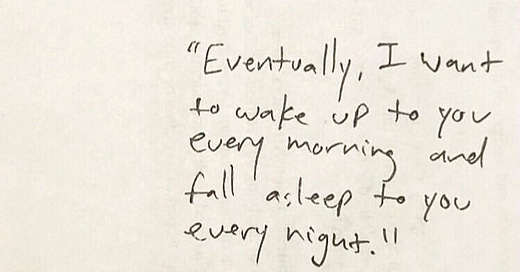 "Eventually, I want
to wake up to you
every morning and
fall asleep to you
every night."